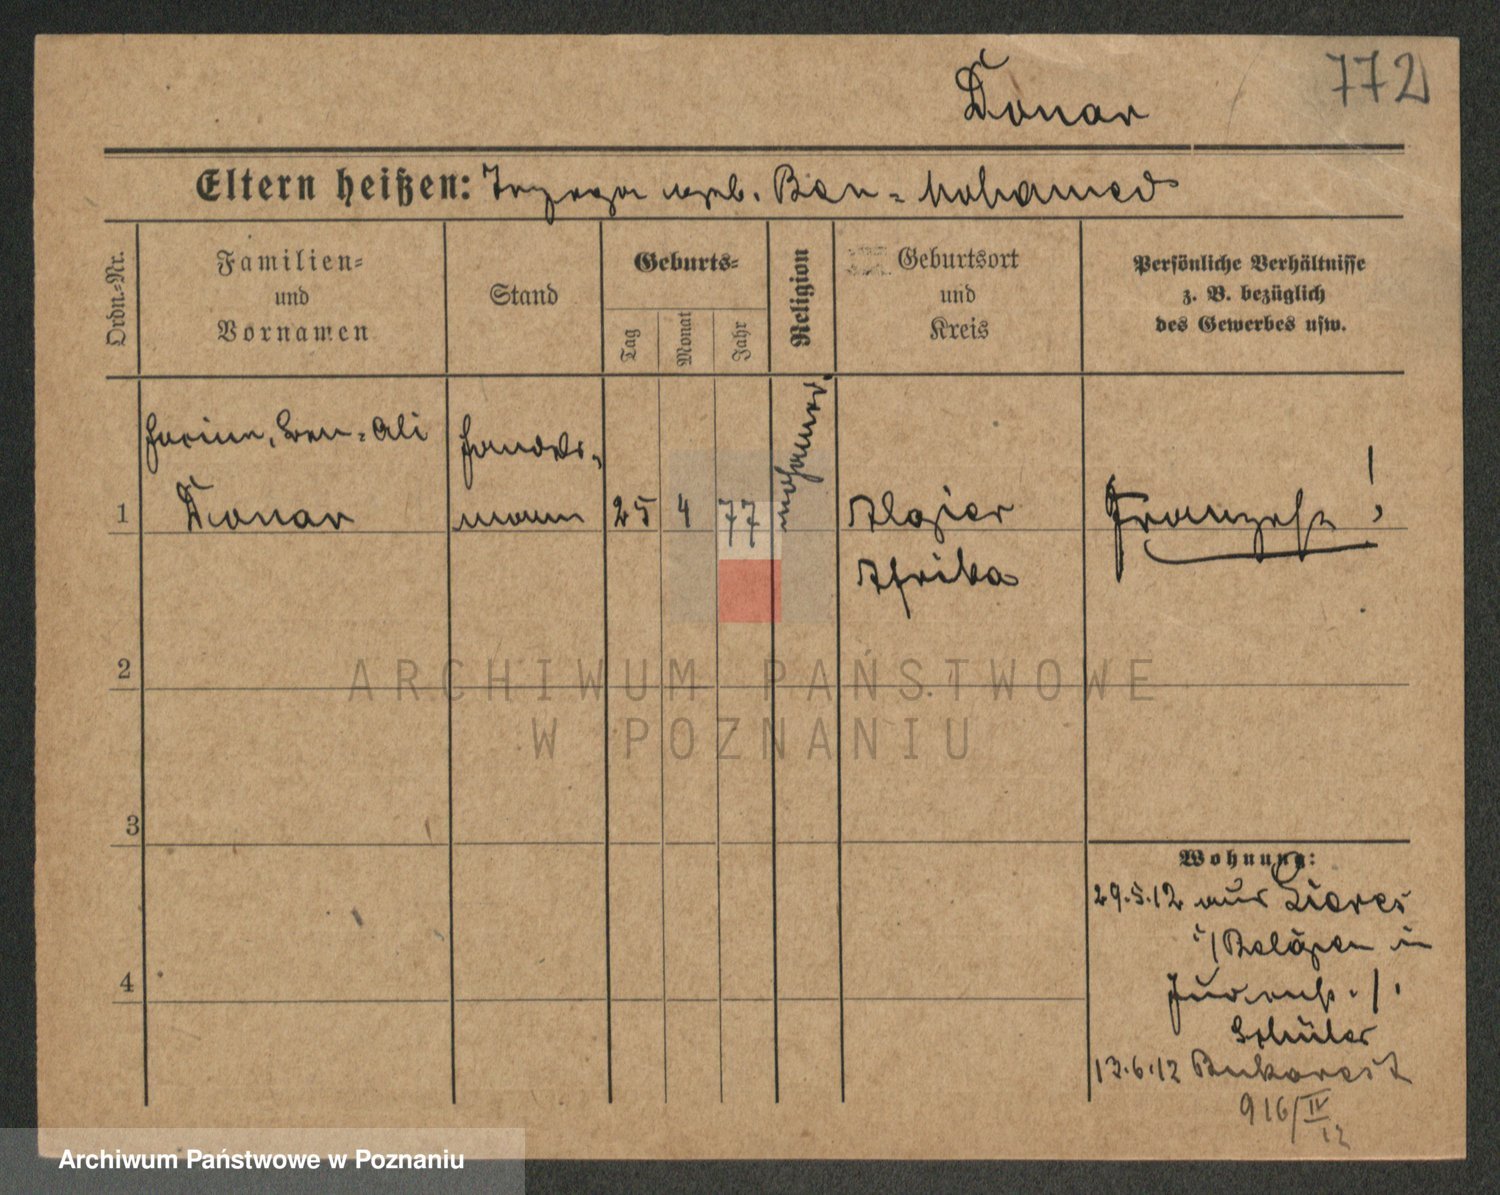 772
Donar
Eltern heißen: geb. Ben = Mohamed
Ordn.=Nr.
Familien=
und
Vornamen
Stand
Geburts=
Tag
Monat
Jahr
Religion
Geburtsort
und
Kreis
Persönliche Verhältnisse
z. B. bezüglich
des Gewerbes usw.
Ben = Ali
Handels-
1 Donar mann 25 4 77 mohamed. Algier Franzose!
Afrika
2
ARCHIWUM PAŃSTWOWE
W POZNANIU
3
Wohnung:
29.5.12 aus
in
4
Schüler
13.6.12 Bukarest
916/IV
12
Archiwum Państwowe w Poznaniu